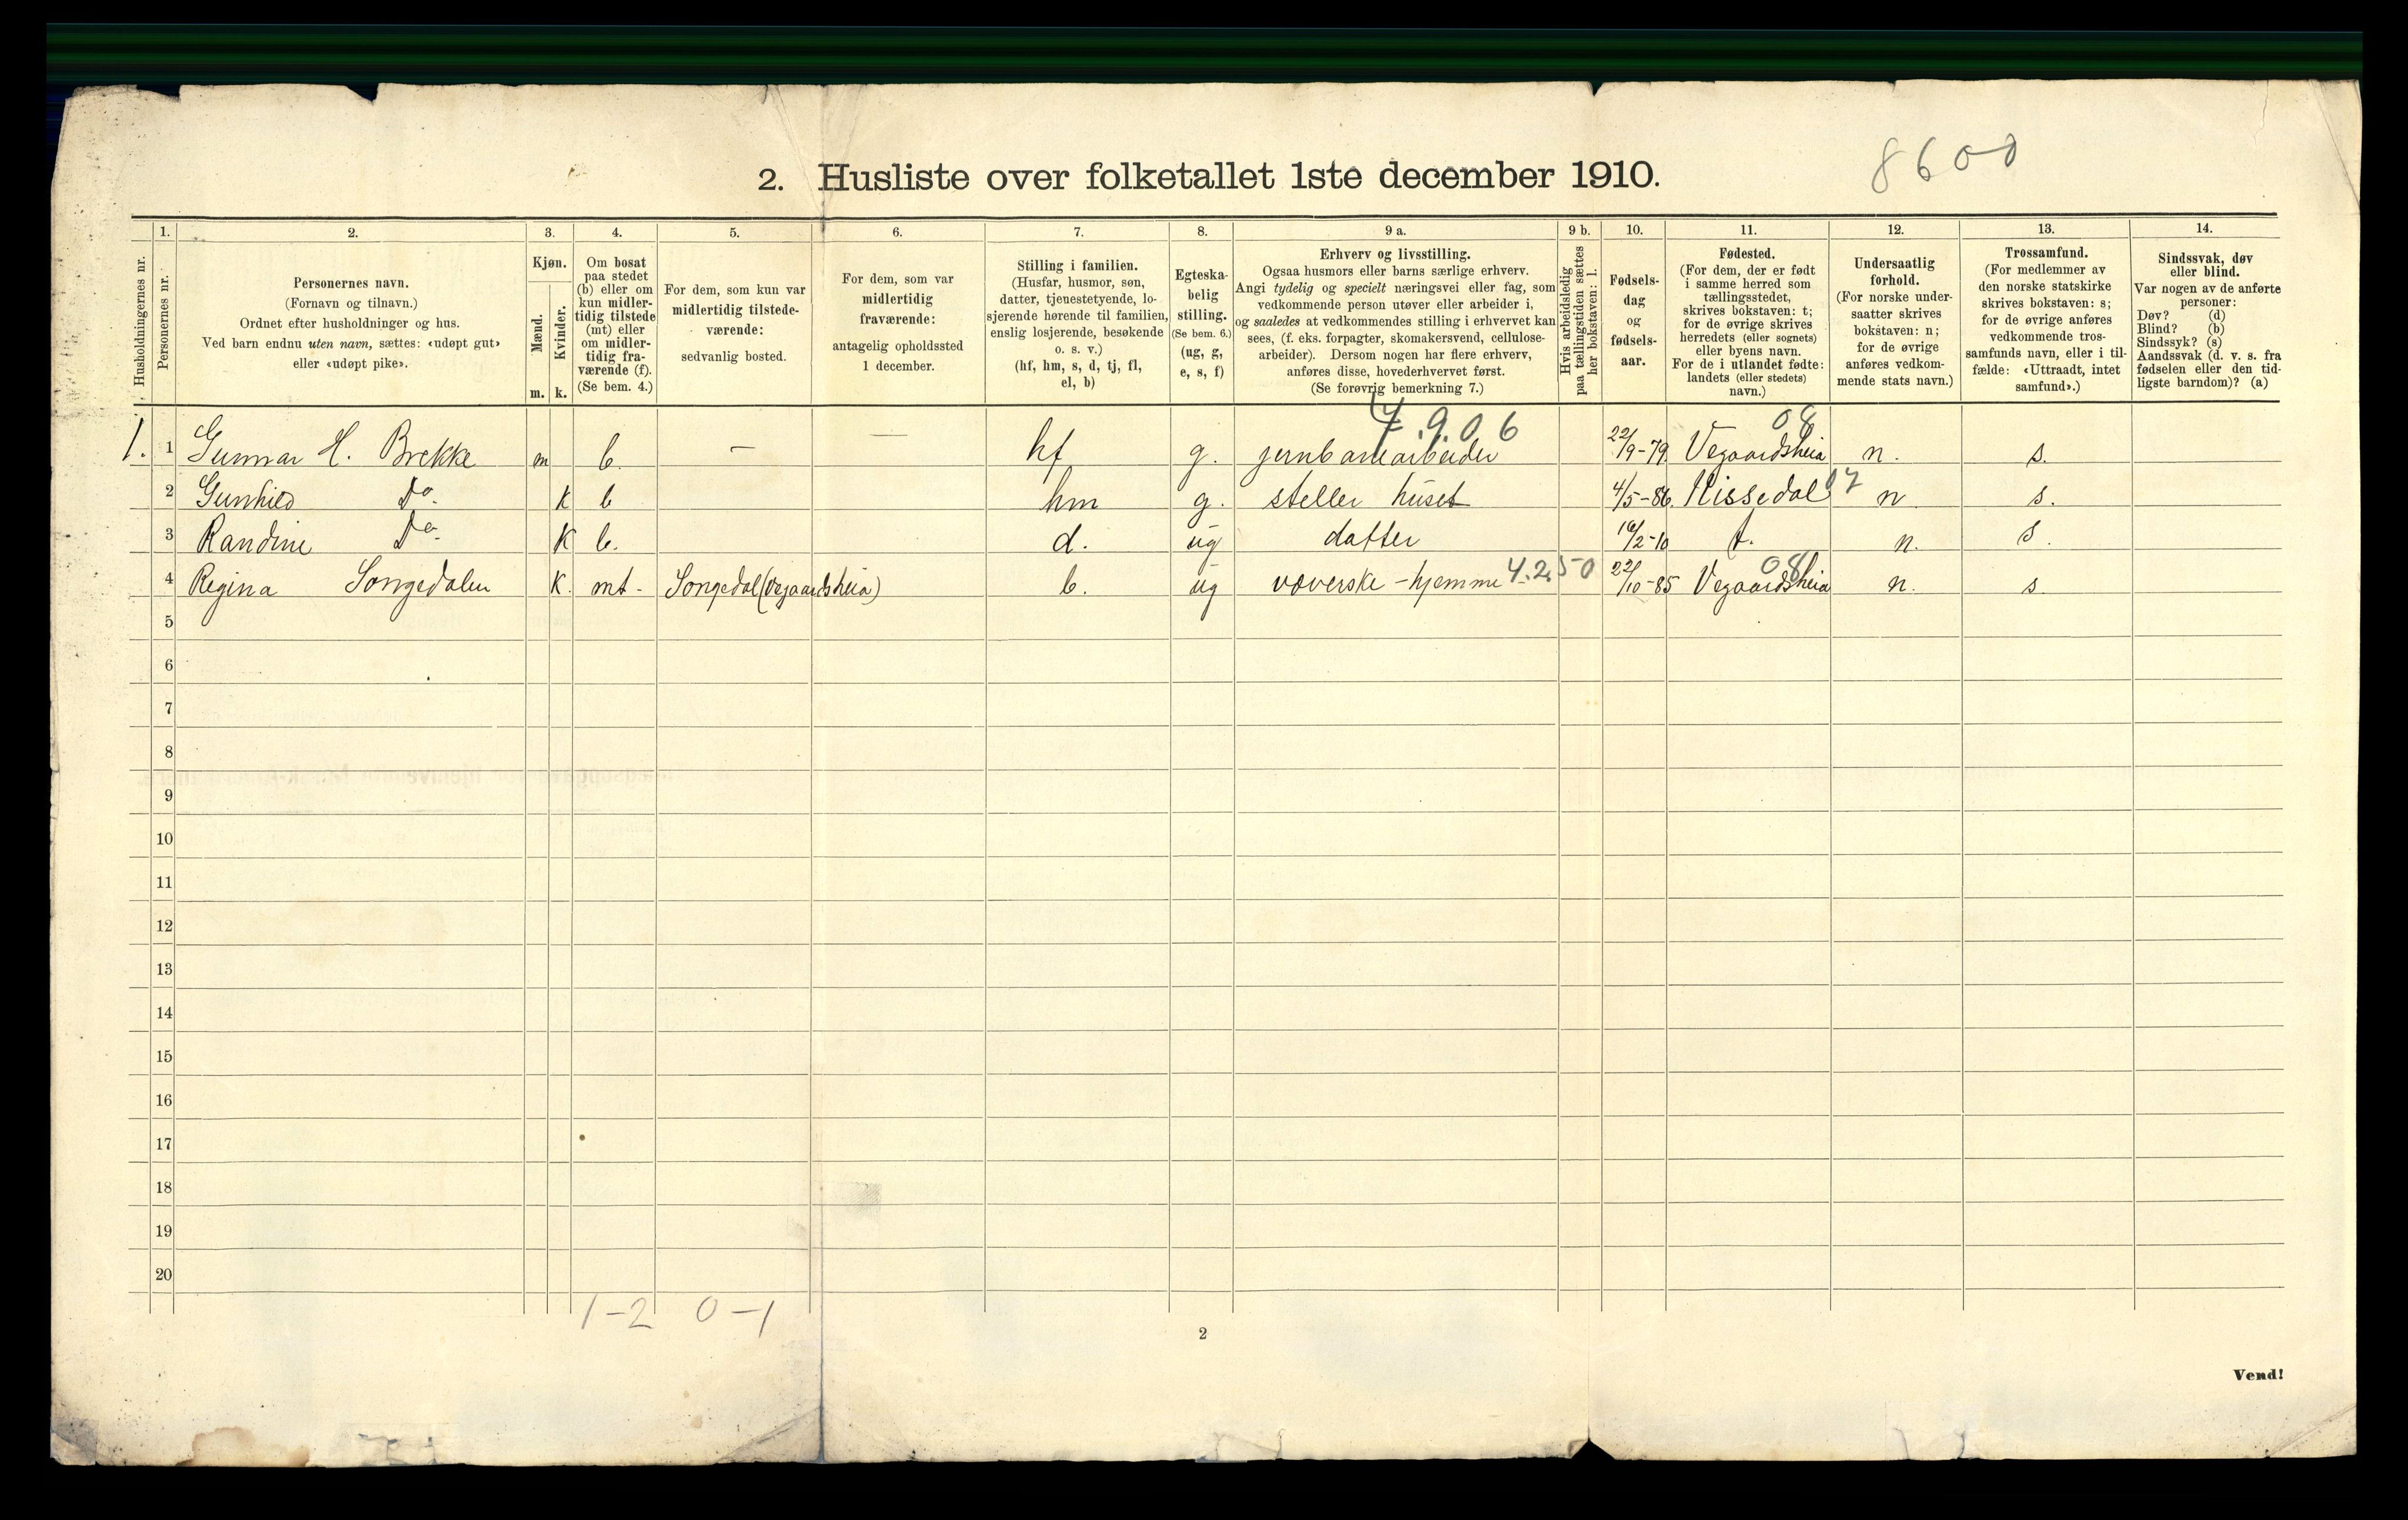 8600
2. Husliste over folketallet 1ste december 1910.
1. 2. 3. 4. 5. 6. 7. 8. 9 a. 9 b. 10. 11. 12. 13. 14.
Husholdningernes nr.
Personernes nr.
Personernes navn.
(Fornavn og tilnavn.)
Ordnet efter husholdninger og hus.
Ved barn endnu uten navn, sættes: «udøpt gut»
eller «udøpt pike».
Kjøn.
Mænd.
Kvinder.
m. k.
Om bosat
paa stedet
(b) eller om
kun midler-
tidig tilstede
(mt) eller
om midler-
tidig fra-
værende (f).
(Se bem. 4.)
For dem, som kun var
midlertidig tilstede-
værende:
sedvanlig bosted.
For dem, som var
midlertidig
fraværende:
antagelig opholdssted
1 december.
Stilling i familien.
(Husfar, husmor, søn,
datter, tjenestetyende, lo-
sjerende hørende til familien,
enslig losjerende, besøkende
o. s. v.)
(hf, hm, s, d, tj, fl,
el, b)
Egteska-
belig
stilling.
(Se bem. 6.)
(ug, g,
e, s, f)
Erhverv og livsstilling.
Ogsaa husmors eller barns særlige erhverv.
Angi tydelig og specielt næringsvei eller fag, som
vedkommende person utøver eller arbeider i,
og saaledes at vedkommendes stilling i erhvervet kan
sees, (f. eks. forpagter, skomakersvend, cellulose-
arbeider). Dersom nogen har flere erhverv,
anføres disse, hovederhvervet først.
(Se forøvrig bemerkning 7.)
Hvis arbeidsledig
paa tællingstiden sættes
her bokstaven: l.
Fødsels-
dag
og
fødsels-
aar.
Fødested.
(For dem, der er født
i samme herred som
tællingsstedet,
skrives bokstaven: t;
for de øvrige skrives
herredets (eller sognets)
eller byens navn.
For de i utlandet fødte:
landets (eller stedets)
navn.)
Undersaatlig
forhold.
(For norske under-
saatter skrives
bokstaven: n;
for de øvrige
anføres vedkom-
mende stats navn.)
Trossamfund.
(For medlemmer av
den norske statskirke
skrives bokstaven: s;
for de øvrige anføres
vedkommende tros-
samfunds navn, eller i til-
fælde: «Uttraadt, intet
samfund».)
Sindssvak, døv
eller blind.
Var nogen av de anførte
personer:
Døv? (d)
Blind? (b)
Sindssyk? (s)
Aandssvak (d. v. s. fra
fødselen eller den tid-
ligste barndom)? (a)
7.9.06 08
1. 1 Gunnar H. Brekke m b. — — hf g. jernbanearbeider 22/9-79 Vegaardsheia n. s.
2 Gunhild Do. K b hm g. steller huset 4/5-86. Hissedal 07 n s.
3 Randine Do. K b. d. ug datter 16/2-10 t. n. s.
4.2.50 08
4 Regina Songedalen K. mt. Songedal (Vegaardsheia) b. ug væverske - hjemme 22/10-85 Vegaardsheia n. s.
5
6
7
8
9
10
11
12
13
14
15
16
17
18
19
20
1-2 0-1
2
Vend!